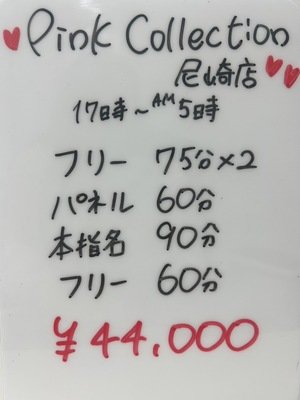 Pink Collection
尼崎店
17時～AM5時
フリー 75分×2
パネル 60分
本指名 90分
フリー 60分
¥44,000